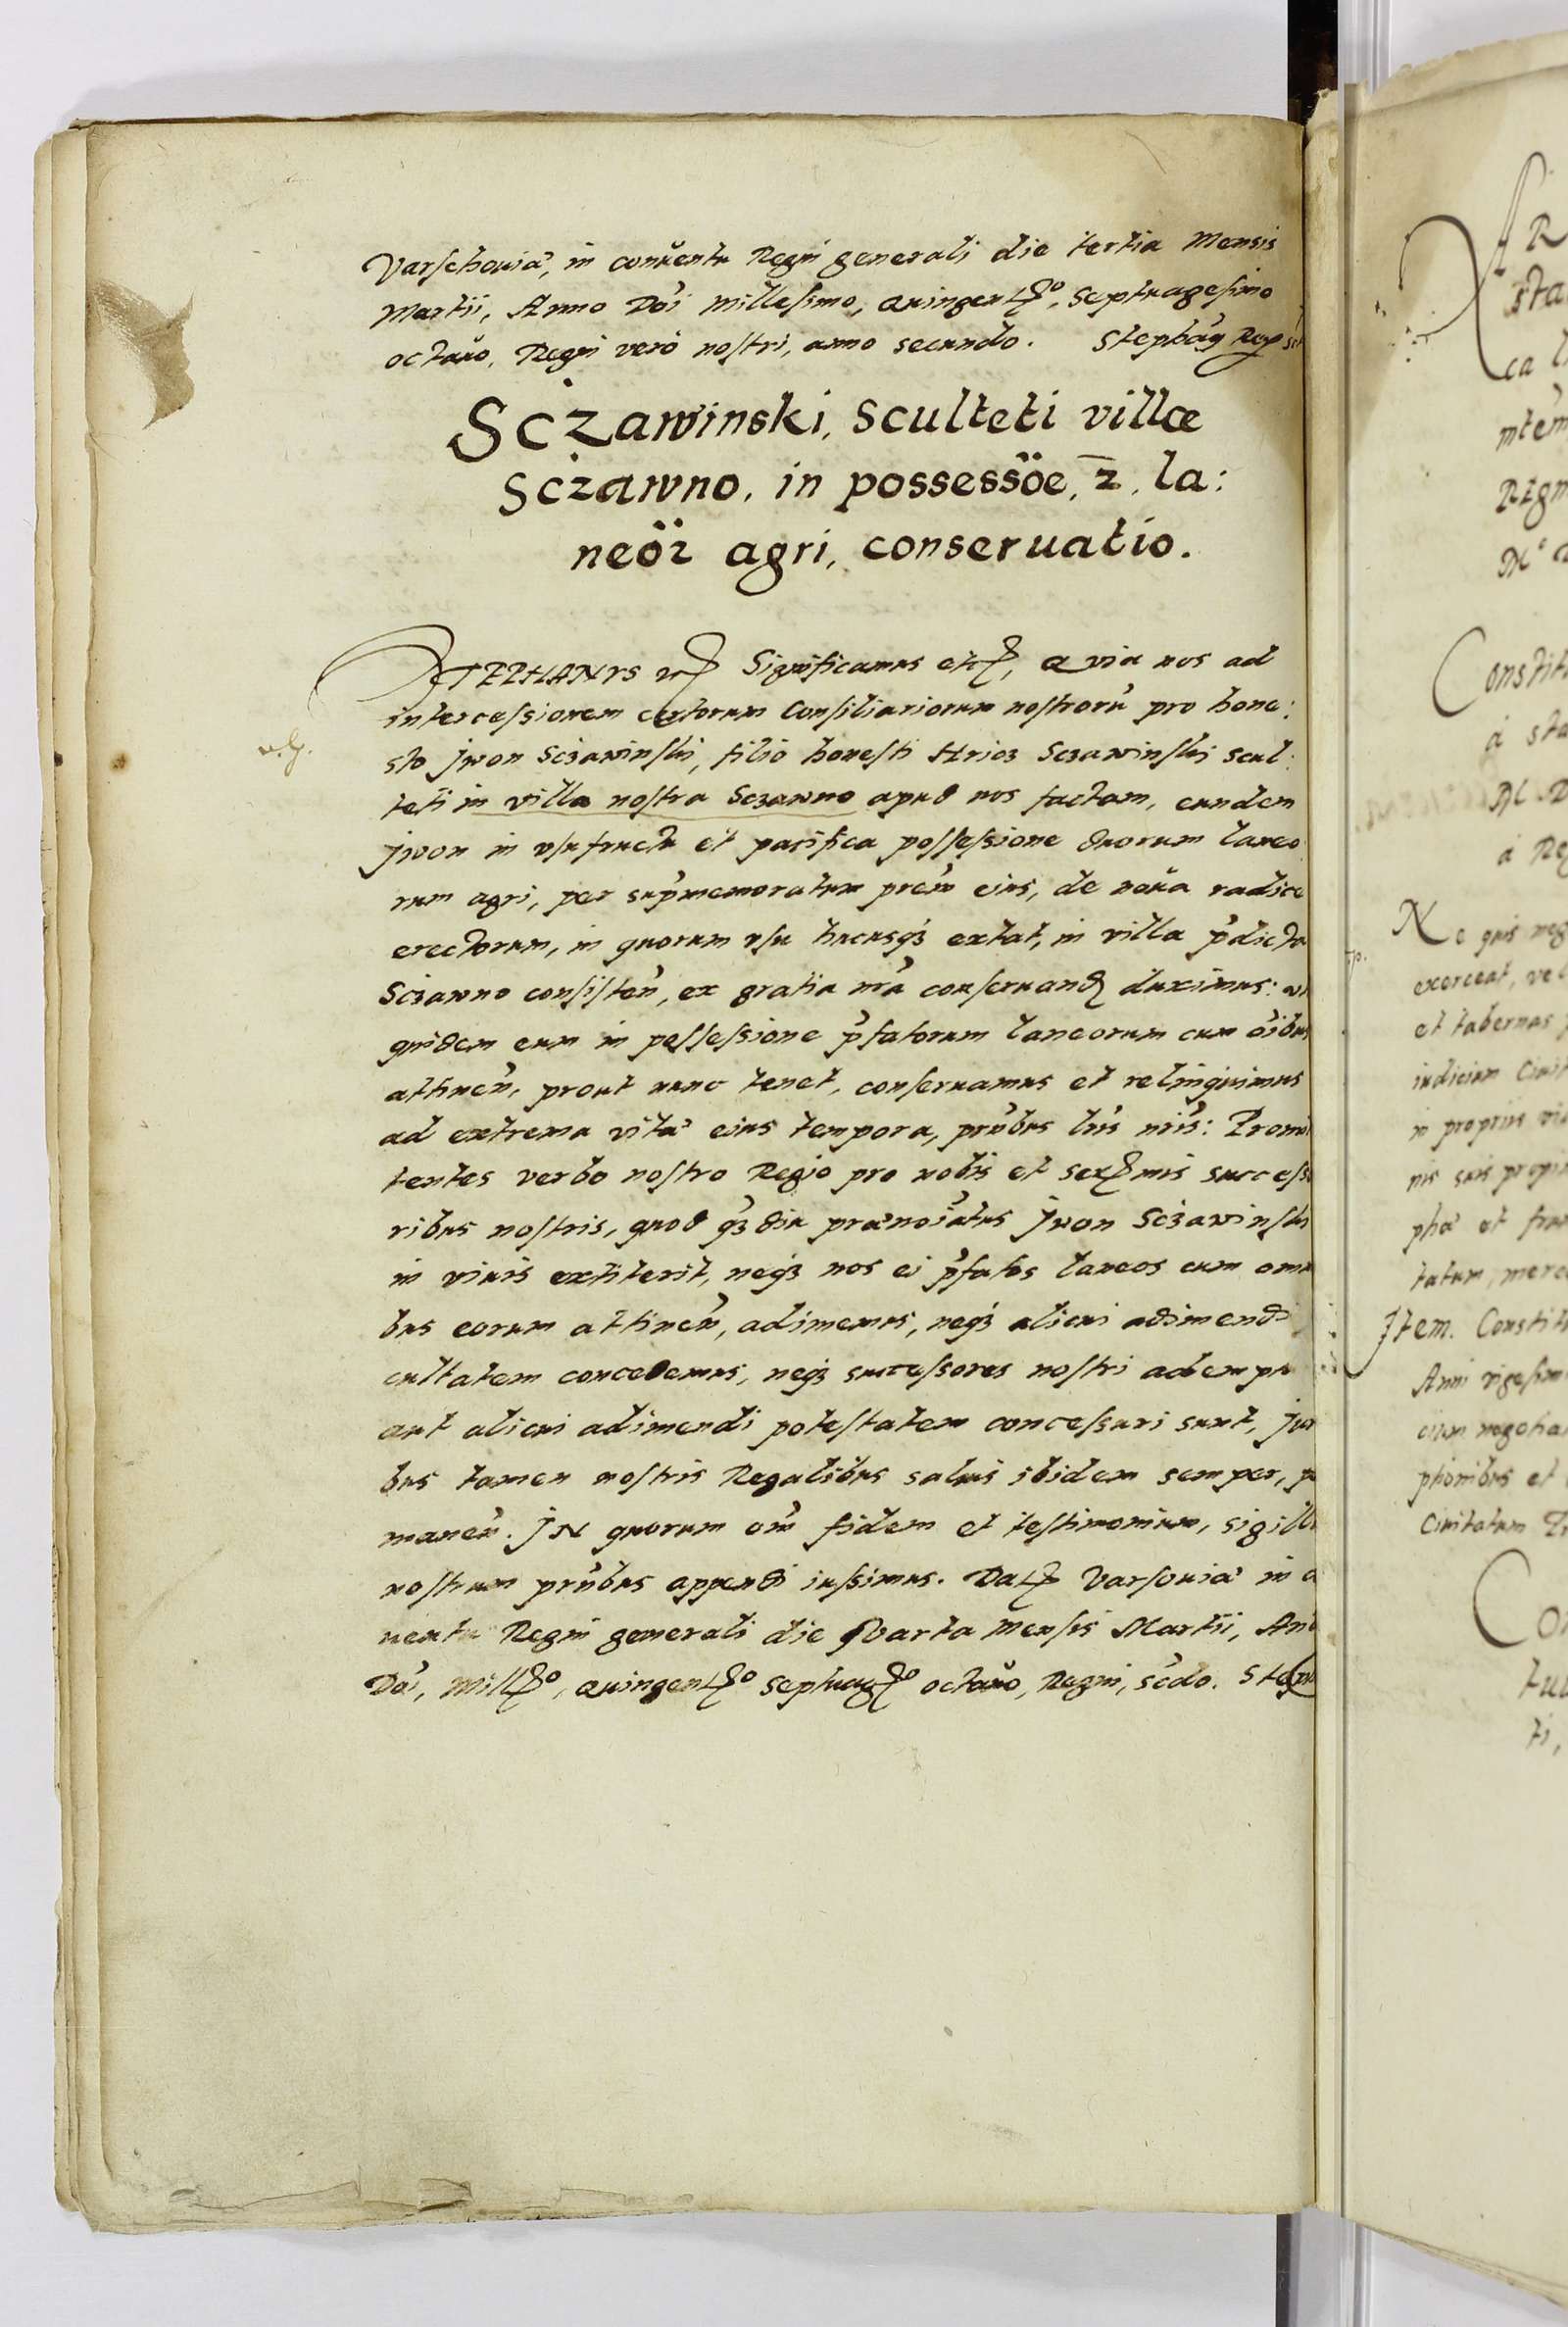 Varschouiæ, in conuentu Regni generali die tertia Mensis
Martii, Anno Doi Millesimo, Quingent⁰, Septuagesimo
octauo, Regni vero nostri, anno secundo. Stephag Rex
Sczawinski, sculteti villæ
Sczawno, in possessöe, 2, la:
neör agri, conseruatio.
STEPHANVS Significamus etc, Quia nos ad
intercessionem certorum Consiliariorum nostroru pro hone:
sto Jwon Sczawinski, filio honesti Hricz Sczawinski scul:
teti in villa nostra Sczawno apud nos factam, eundem
Jwon in vsufructu et pacifica possessione duorum laneo
rum agri, per supmemoratum prem eius, de noua radice
erectorum, in quorum vsu hucusq3 extat, in villa pdicta
Sczawno consisten, ex gratia nra conseruand duximus:
quidem eum in possessione pfatorum laneorum cum oibus
attinen, prout nunc tenet, conseruamus et relinquimus
ad extrema vitæ eius tempora, pntibus lris nris: Promi
tentes verbo nostro Regio pro nobis et ser mis success
ribus nostris, quod q3diu prænoiatus Jwon Sczawinski
in viuis extiterit, neq3 nos ei pfatos laneos cum omn
bus eorum attinen, adimemus, neq3 alicui adimendi
cultatem concedemus, neq3 successores nostri adempt
aut alicui adimendi potestatem concessuri sunt, jur
bus tamen nostris Regalibus saluis ibidem semper, p
manen. JN quorum om fidem et testimonium, sigill
nostrum pntibus appendi iussimus. Dat Varsouiæ in c
uentu Regni generali die Quarta Mensis Martii, An
Doi, Mill⁰, Quingent⁰ septuag⁰ octauo, Regni, scdo. Steph
R
sta
ca l
mtem
Regn
Constit
a sta
a Re
Ne quis neg
exerceat, vel
et tabernas
iudicium Ciuit
in propriis
nis suis propri
tatum, merc
Jtem. Constit
Anni vigesim
cium negotia
ptionibus et
Ciuitatum
Co
tu
ti,